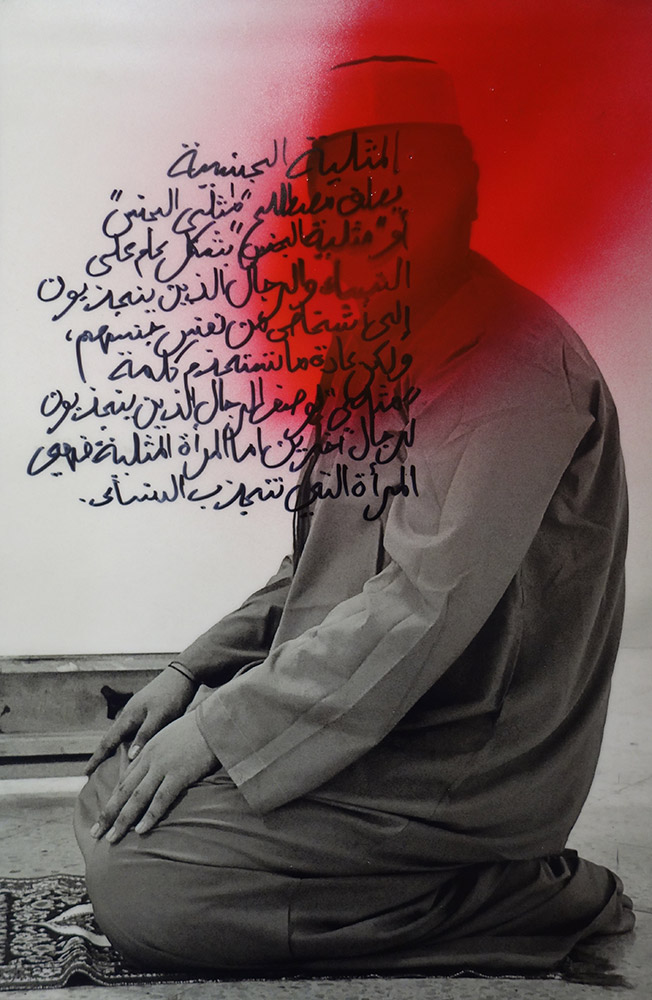 المثلية الجنسية
يطلق مصطلح "مثلي الجنس"
أو "مثلية الجنس" بشكل عام على
النساء والرجال الذين ينجذبون
إلى أشخاص من نفس جنسهم،
ولكن عادة ما تستخدم كلمة
"مثلي" لوصف الرجال الذين ينجذبون
لرجال آخرين اما المرأة المثلية فهي
المرأة التي تنجذب للنساء.